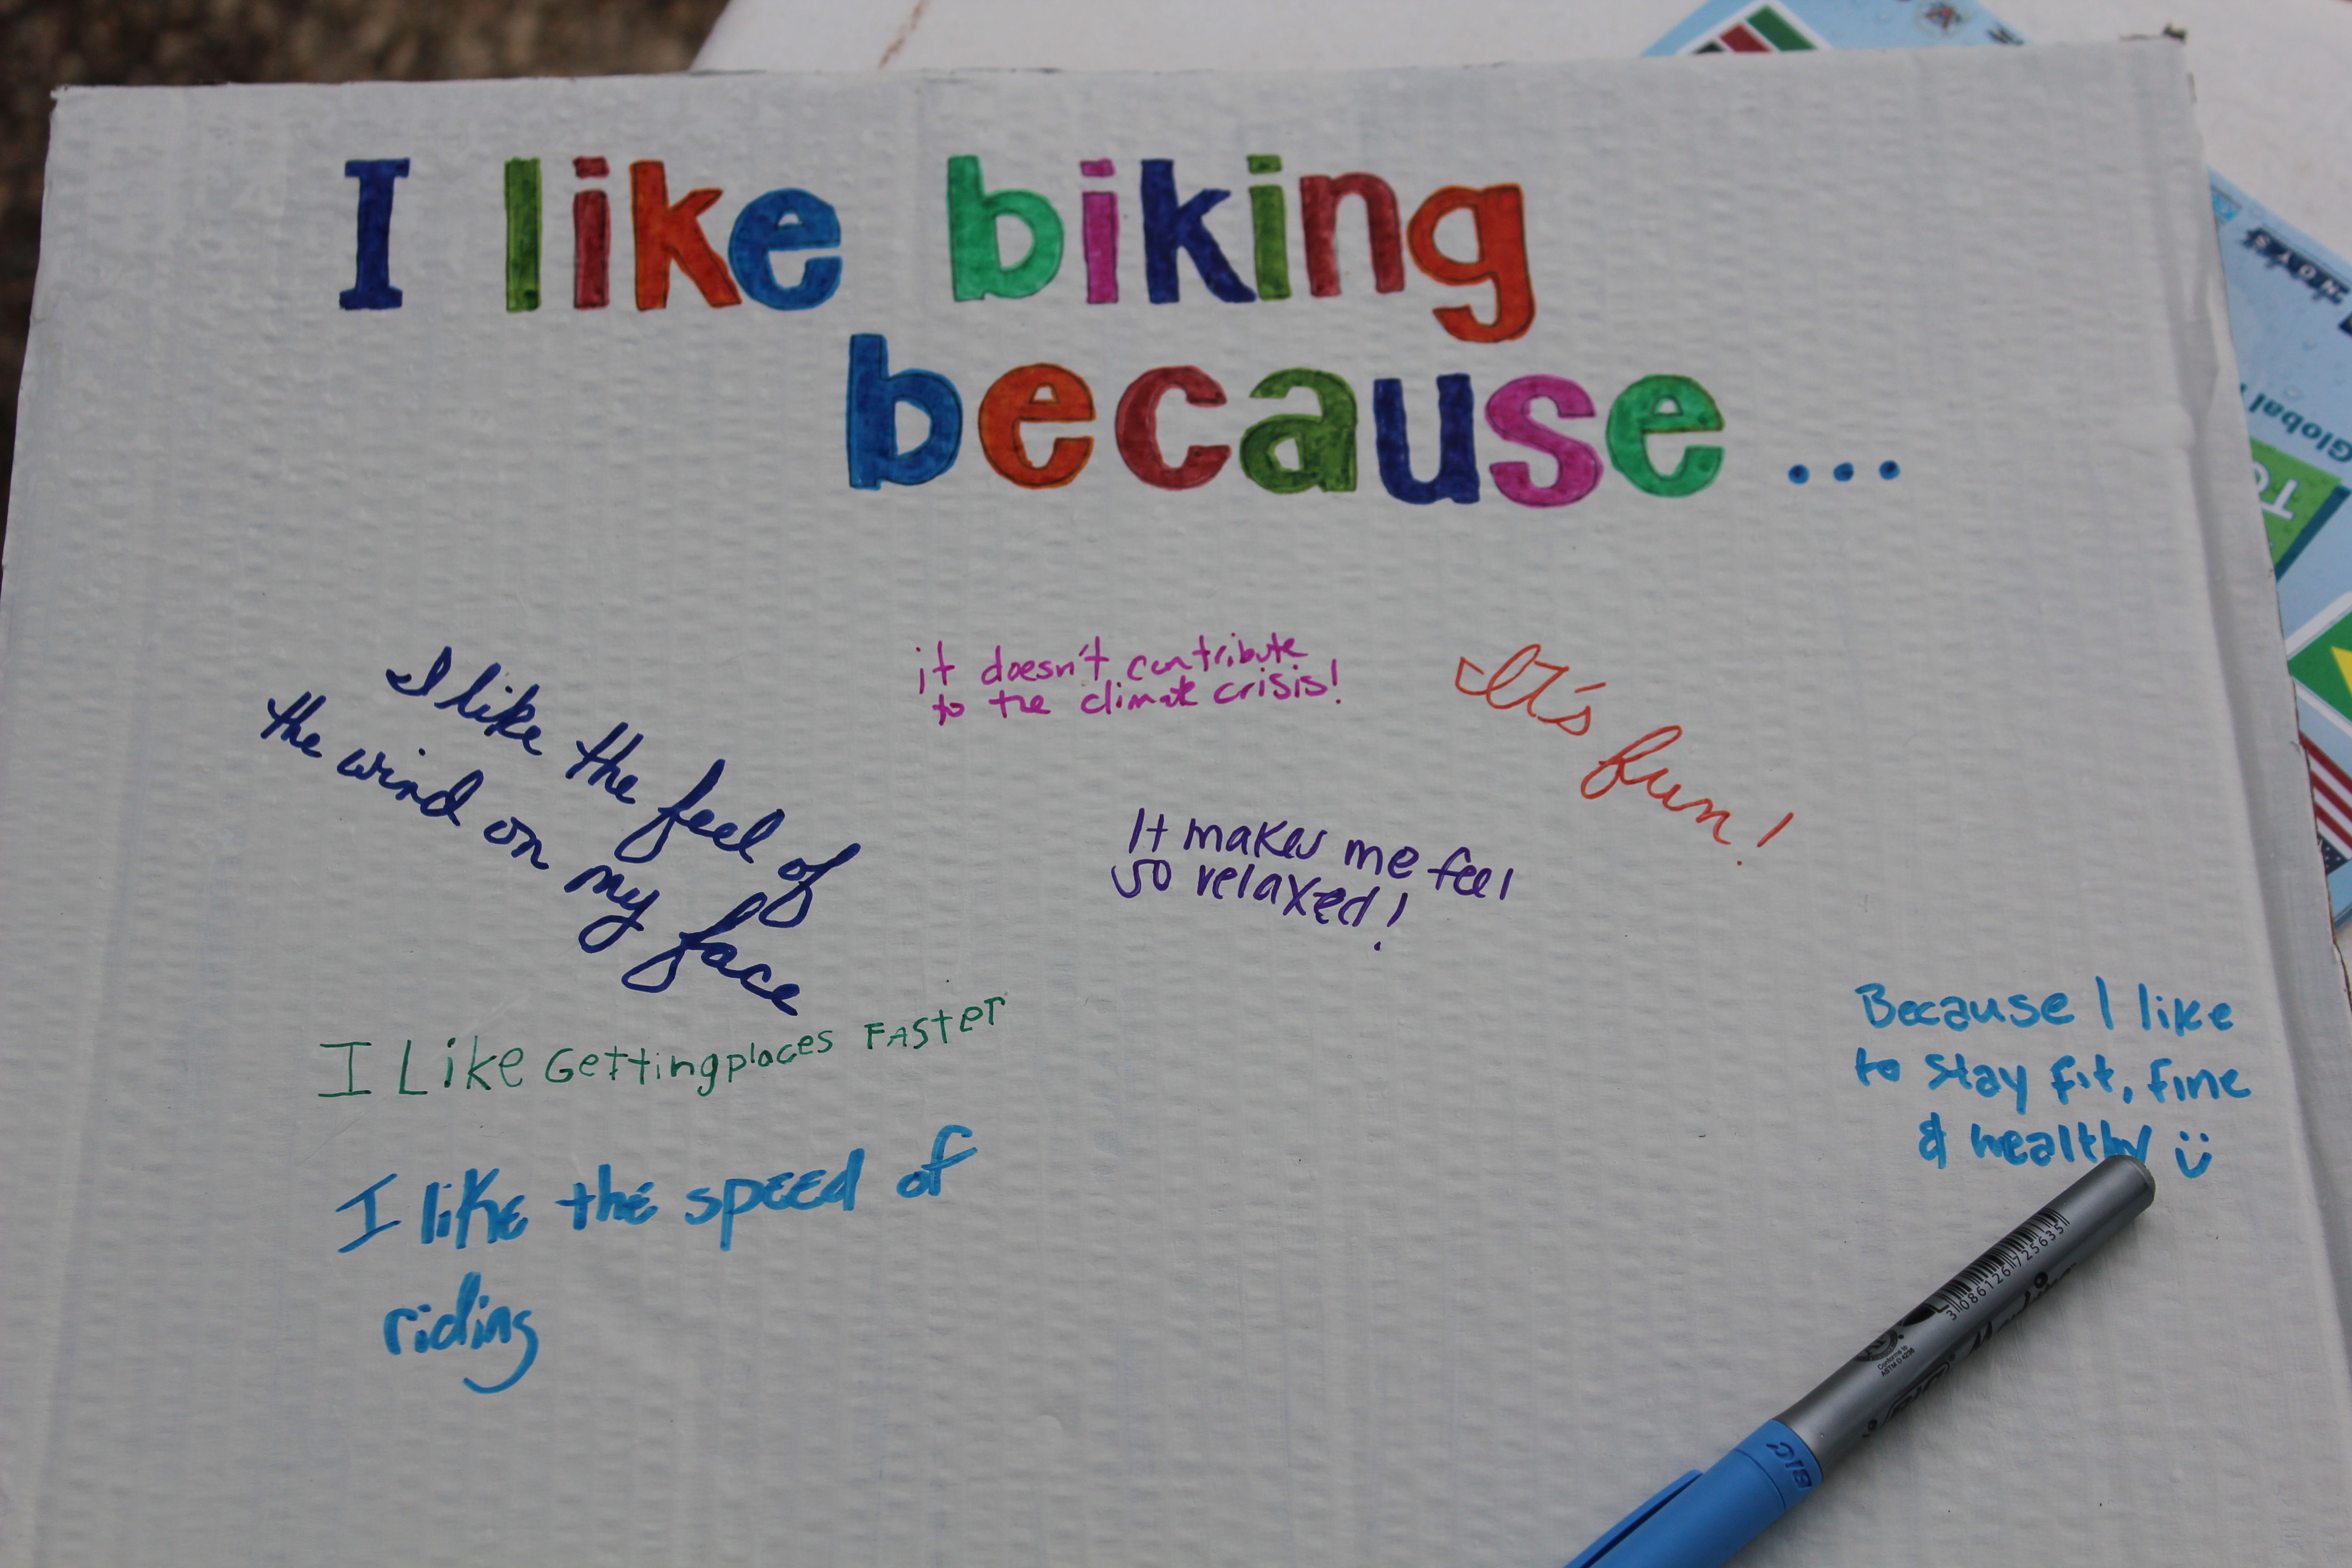 I like biking
because...
I like the feel of
the wind on my face
it doesn't contribute
to the climate crisis!
It's fun!
It makes me feel
so relaxed!
I Like Getting places FASTER
I like the speed of
riding
Because I like
to stay fit, fine
& healthy ü
3086126725635
Conforms to
ASTM D 4236
BIC Marking
BIC
Global
TO